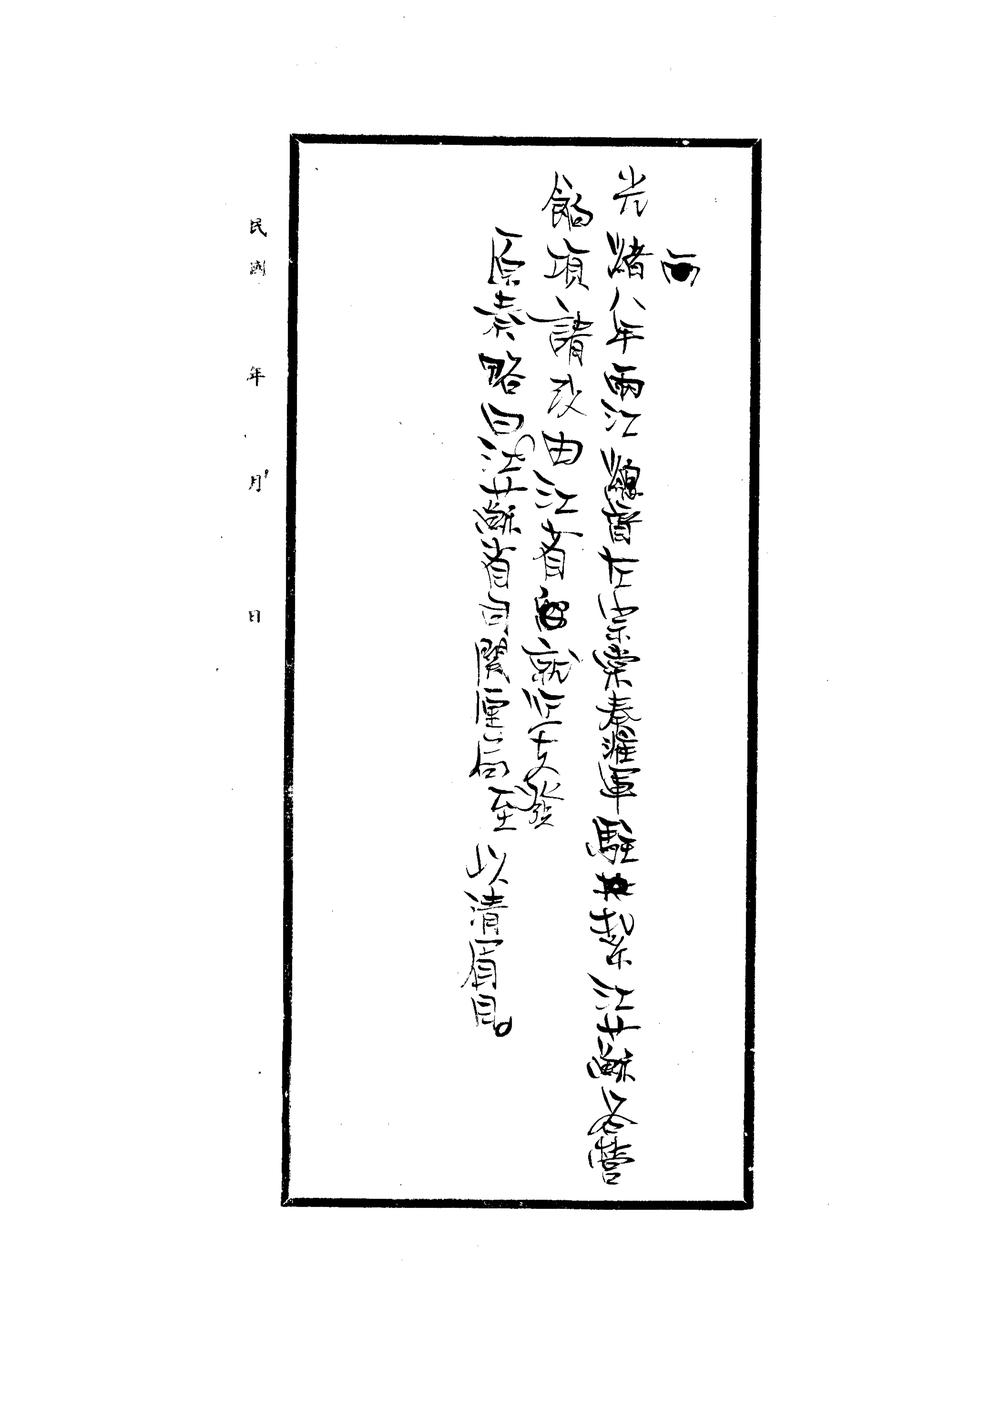 光緒八年兩江總督左宗棠奏淮軍駐紮江蘇各營
餉項請改由江省就近支發
原奏略曰江蘇省自關厘局至以清眉目。
民國 年 月 日